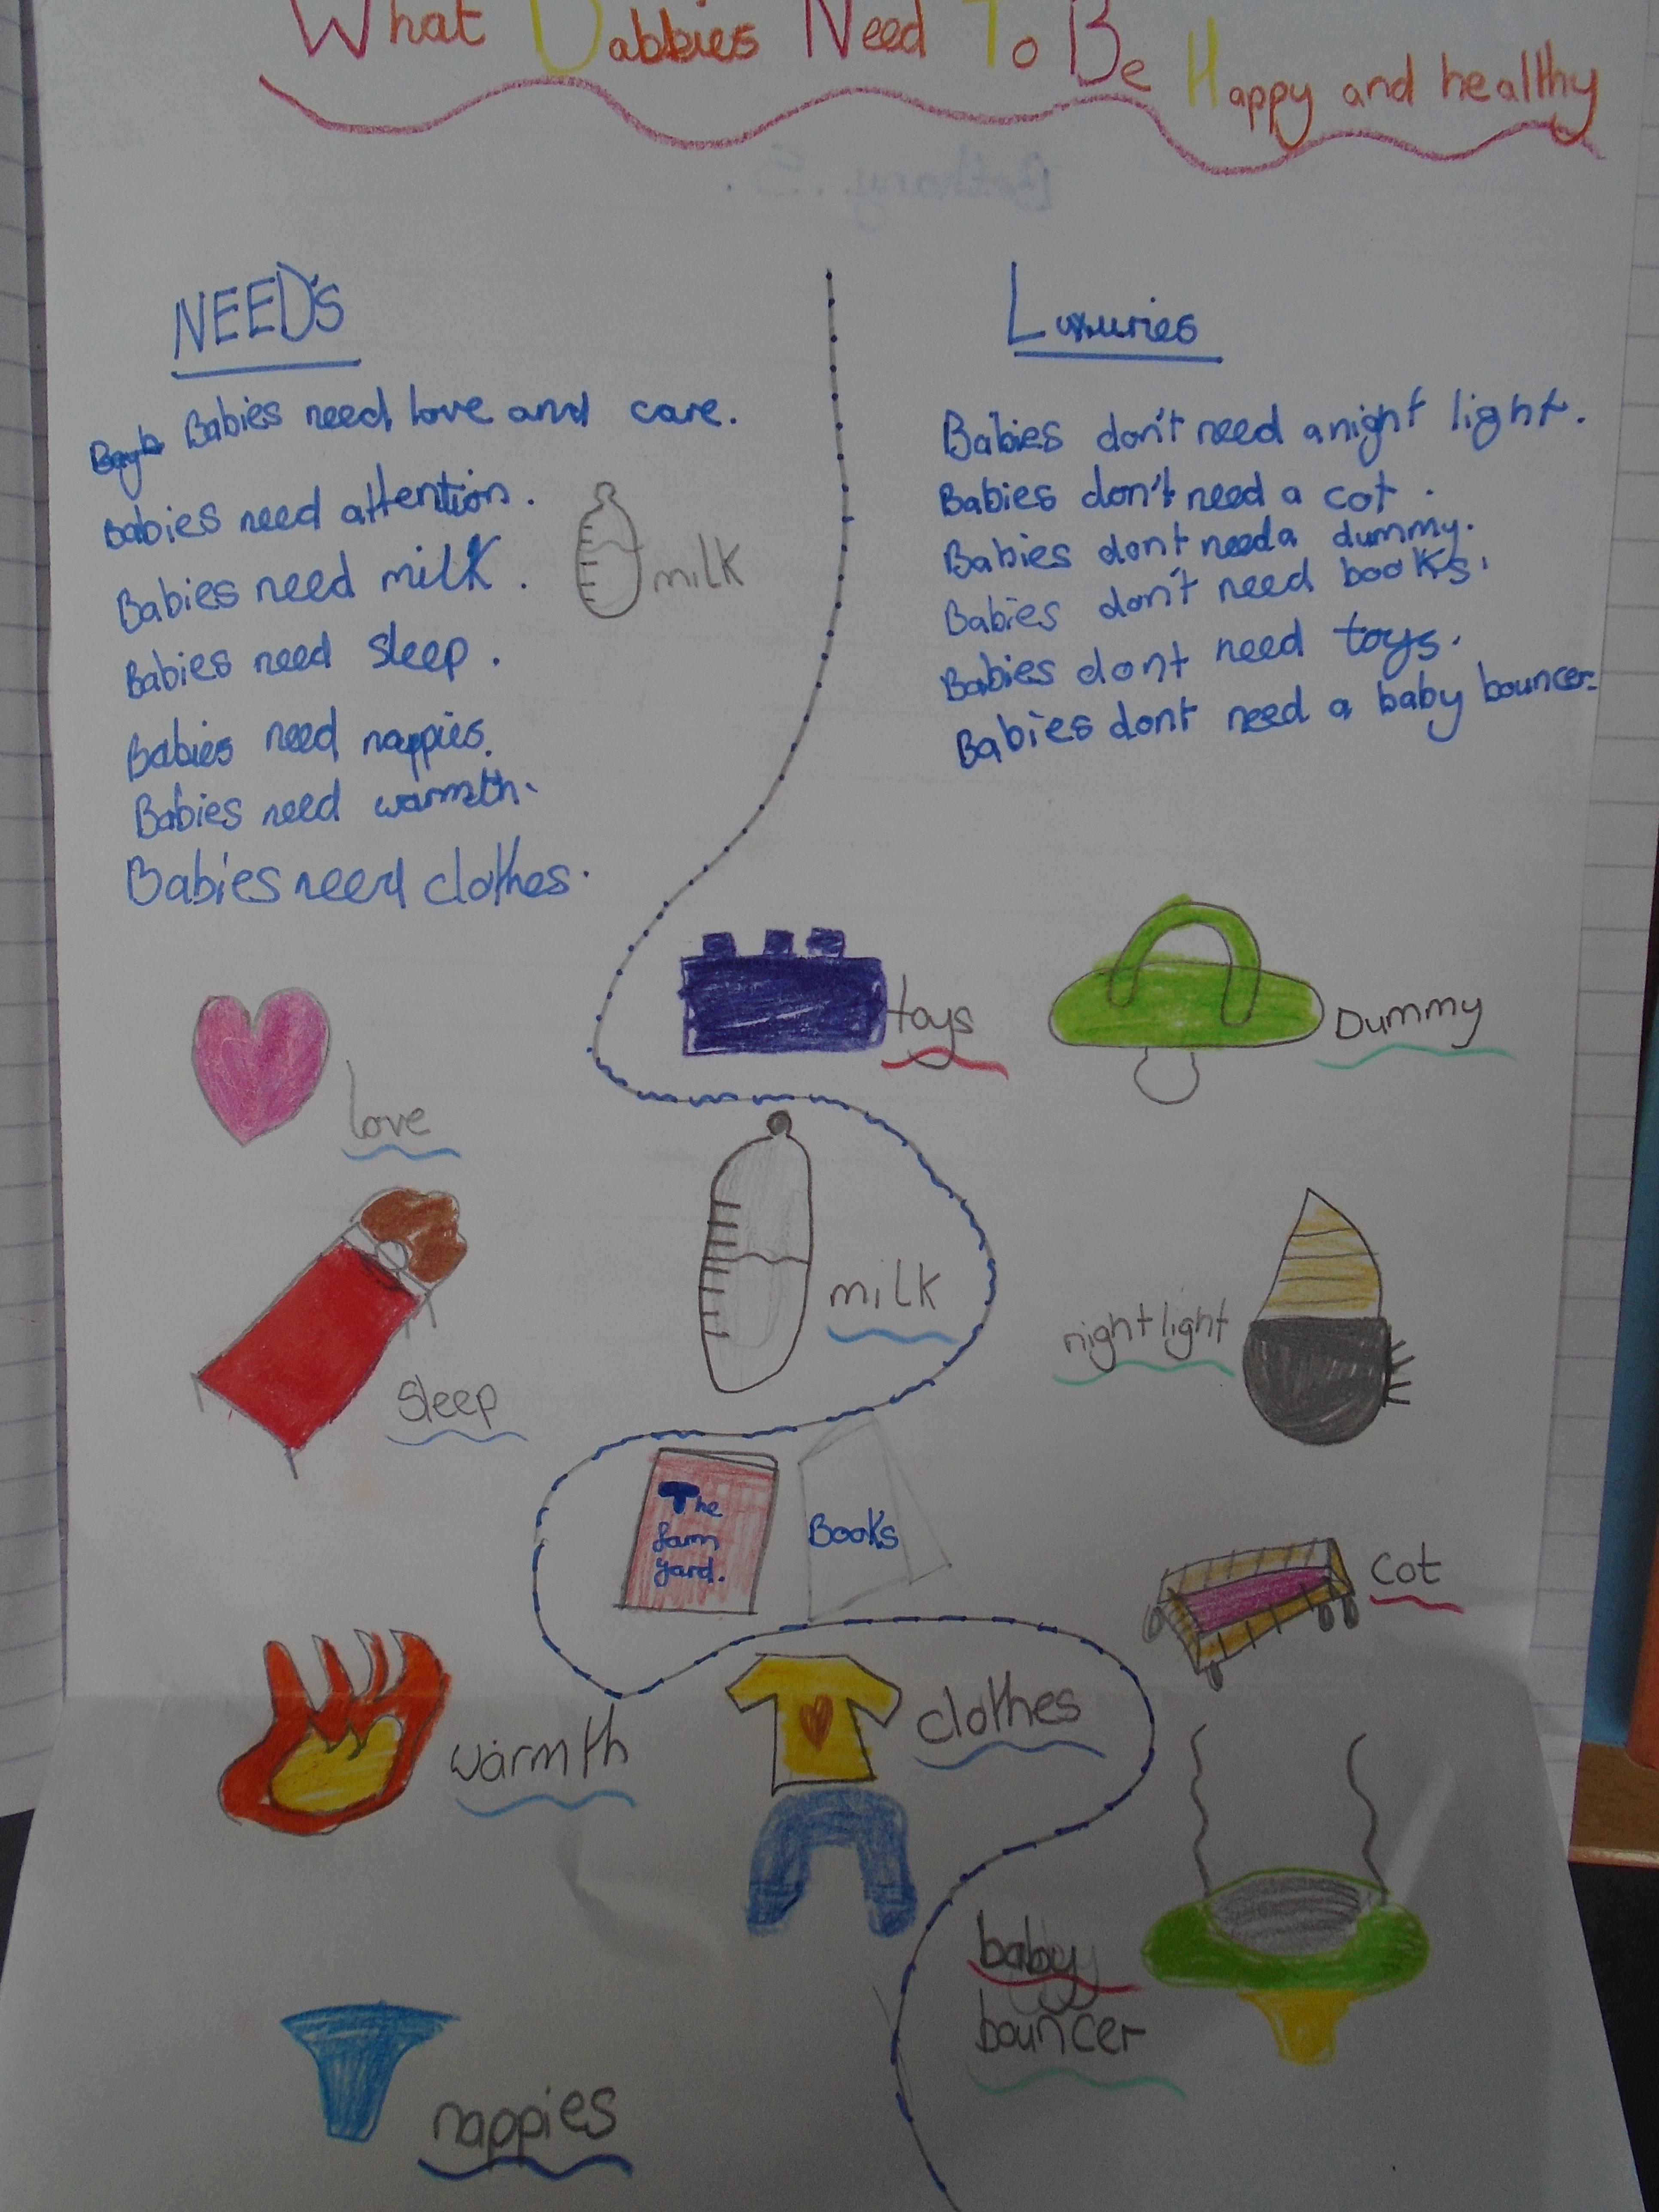 What Babbies Need To Be Happy and healthy
Bethany. S.
NEED'S
Babies need love and care.
Babies need attention.
Babies need milk.
milk
Babies need sleep.
Babies need nappies.
Babies need warmth.
Babies need clothes.
Luxuries
Babies don't need a night light.
Babies don't need a cot.
Babies dont need a dummy.
Babies don't need books.
Babies dont need toys.
Babies dont need a baby bouncer.
toys
Dummy
love
milk
night light
sleep
The
farm
yard.
Books
cot
warmth
clothes
baby
bouncer
nappies